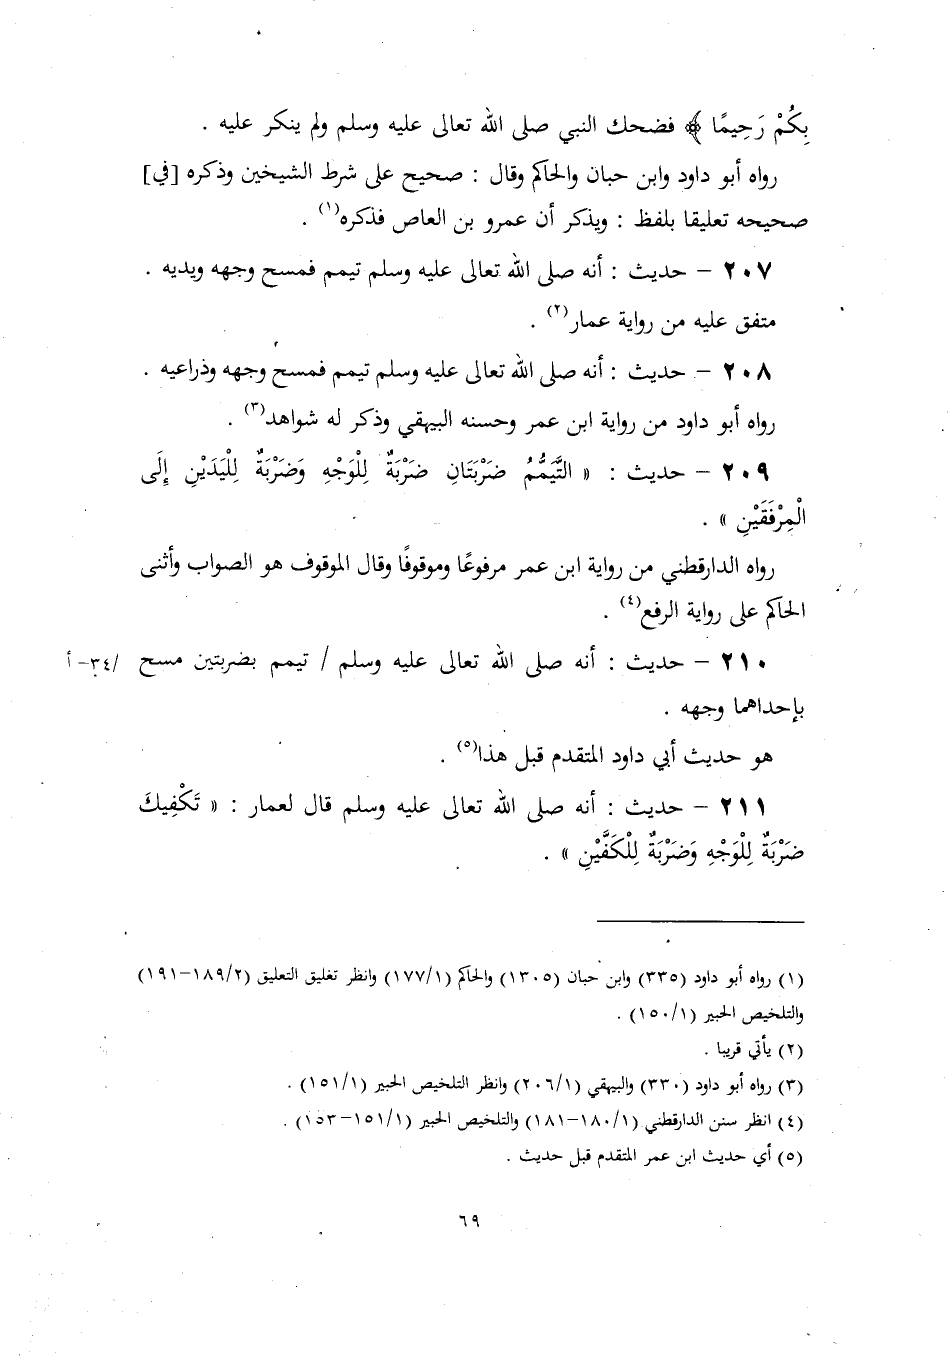 بِكُمْ رَحِيمًا ﴾ فضحك النبي صلى الله تعالى عليه وسلم ولم ينكر عليه .
رواه أبو داود وابن حبان والحاكم وقال : صحيح على شرط الشيخين وذكره [في]
صحيحه تعليقا بلفظ : ويذكر أن عمرو بن العاص فذكره(١) .
٢٠٧ – حديث : أنه صلى الله تعالى عليه وسلم تيمم فمسح وجهه ويديه .
متفق عليه من رواية عمار(٢) .
٢٠٨ – حديث : أنه صلى الله تعالى عليه وسلم تيمم فمسح وجهه وذراعيه .
رواه أبو داود من رواية ابن عمر وحسنه البيهقي وذكر له شواهد(٣) .
٢٠٩ – حديث : « التَّيَمُّمُ ضَرْبَتَانِ ضَرْبَةٌ لِلْوَجْهِ وَضَرْبَةٌ لِلْيَدَيْنِ إِلَى
الْمِرْفَقَيْنِ » .
رواه الدارقطني من رواية ابن عمر مرفوعًا وموقوفًا وقال الموقوف هو الصواب وأثنى
الحاكم على رواية الرفع(٤) .
٢١٠ – حديث : أنه صلى الله تعالى عليه وسلم / تيمم بضربتين مسح /٣٤- أ
بإحداهما وجهه .
هو حديث أبي داود المتقدم قبل هذا(٥) .
٢١١ – حديث : أنه صلى الله تعالى عليه وسلم قال لعمار : « تَكْفِيكَ
ضَرْبَةٌ لِلْوَجْهِ وَضَرْبَةٌ لِلْكَفَّيْنِ » .
(١) رواه أبو داود (٣٣٥) وابن حبان (١٣٠٥) والحاكم (١٧٧/١) وانظر تغليق التعليق (١٨٩/٢–١٩١)
والتلخيص الحبير (١٥٠/١) .
(٢) يأتي قريبا .
(٣) رواه أبو داود (٣٣٠) والبيهقي (٢٠٦/١) وانظر التلخيص الحبير (١٥١/١) .
(٤) انظر سنن الدارقطني (١٨٠/١–١٨١) والتلخيص الحبير (١٥١/١–١٥٣) .
(٥) أي حديث ابن عمر المتقدم قبل حديث .
٦٩